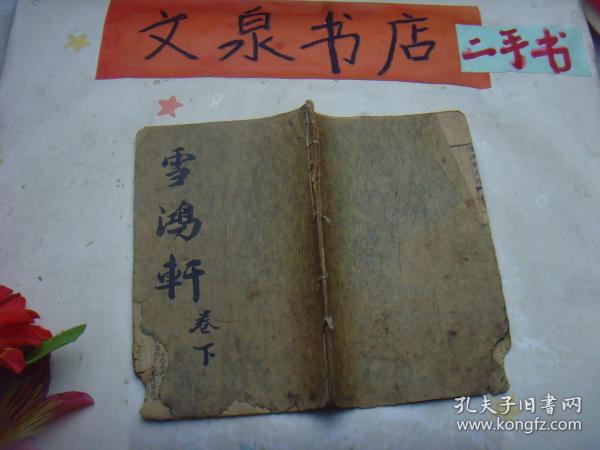 文泉书店
二手书
雪鴻軒
卷下
孔夫子旧書网
www.kongfz.com